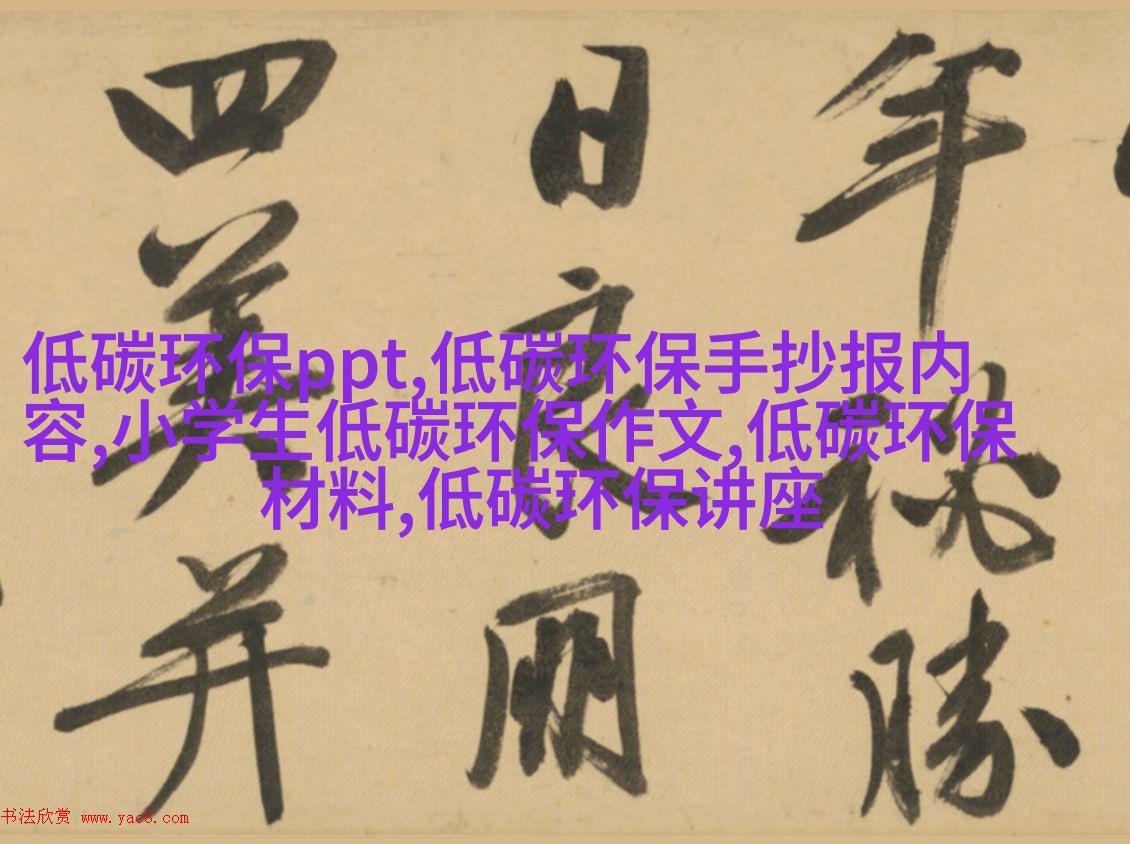 年
勝
日良朋
四美并
低碳环保ppt,低碳环保手抄报内
容,小学生低碳环保作文,低碳环保
材料,低碳环保讲座
书法欣赏 www.yac8.com